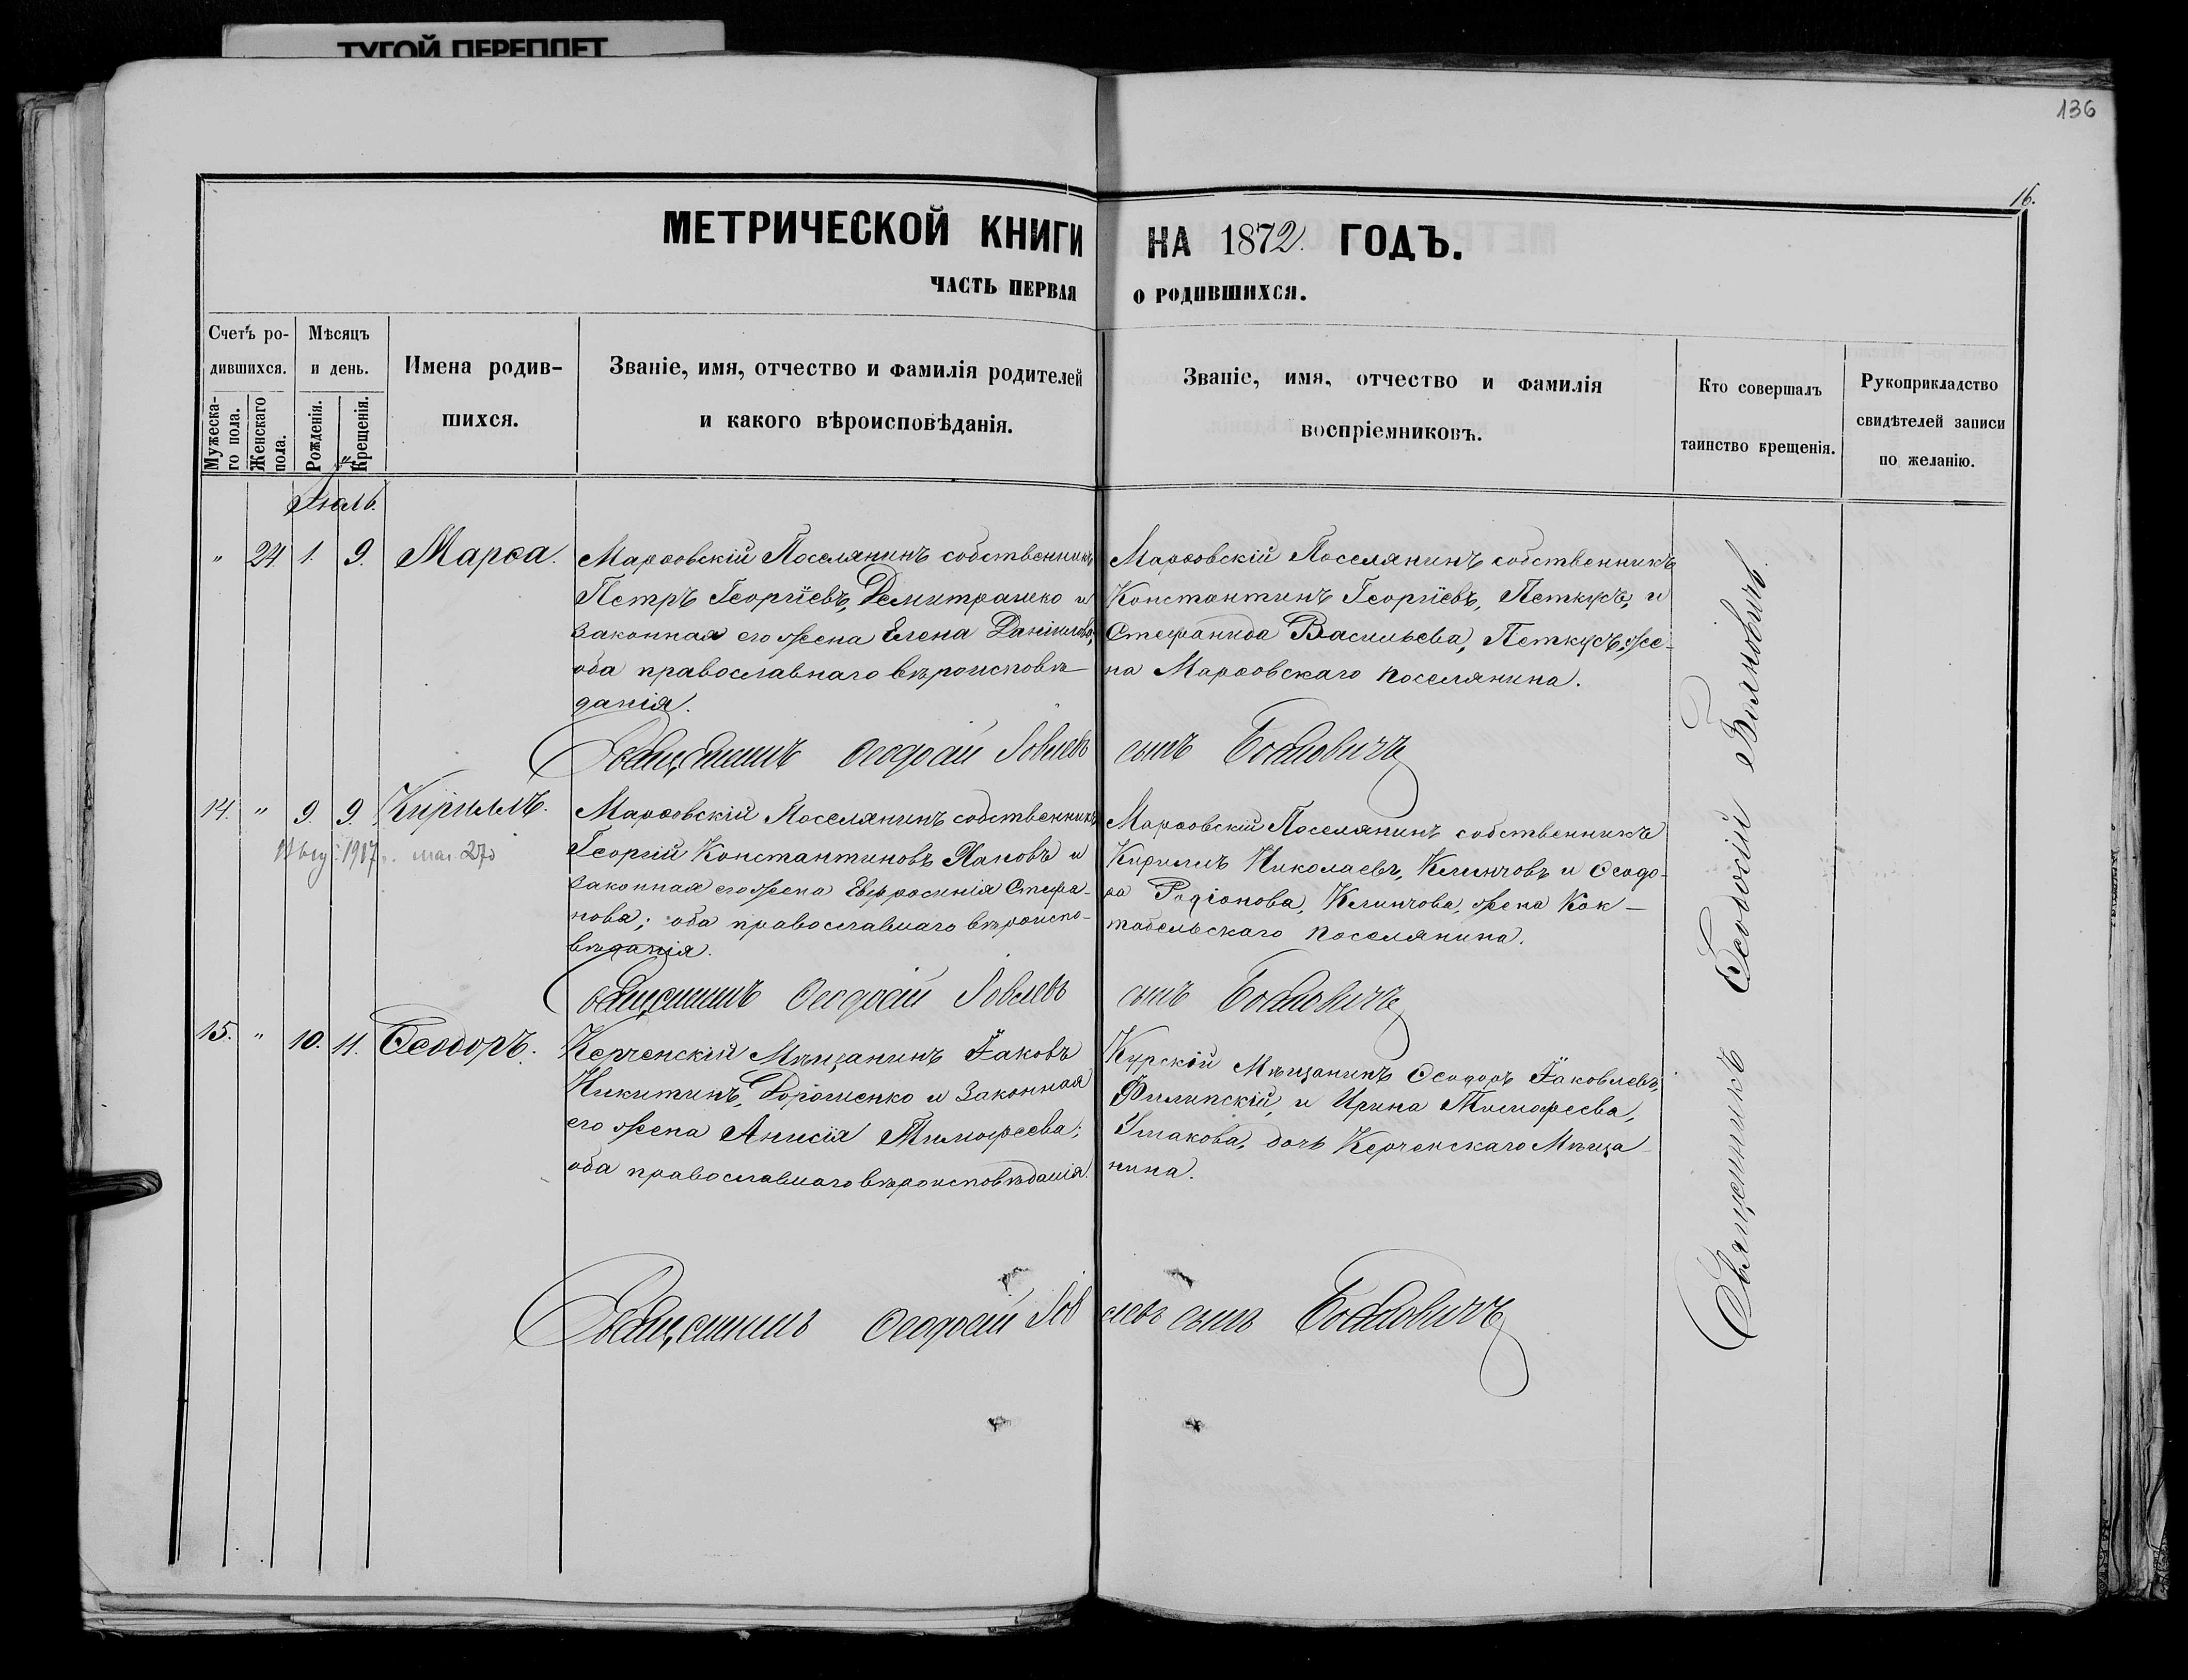 ТУГОЙ ПЕРЕПЛЕТ
136
16.
МЕТРИЧЕСКОЙ КНИГИ НА 1872. ГОДЪ.
ЧАСТЬ ПЕРВАЯ О РОДИВШИХСЯ.
Счетъ ро-
дившихся.
Мужеска-
го пола.
Женскаго
пола.
Мѣсяцъ
и день.
Рожденія.
Крещенія.
Имена родив-
шихся.
Званіе, имя, отчество и фамилія родителей
и какого вѣроисповѣданія.
Званіе, имя, отчество и фамилія
воспріемниковъ.
Кто совершалъ
таинство крещенія.
Рукоприкладство
свидѣтелей записи
по желанію.
Іюль.
" 24. 1. 9. Марѳа.
Марѳовскій Поселянинъ собственникъ
Петръ Георгіевъ, Демитрашко и
законная его жена Елена Данілова,
оба православнаго вѣроисповѣ-
данія.
Марѳовскій Поселянинъ собственникъ
Константинъ Георгіевъ, Петкусъ, и
Стефанида Васильева, Петкусъ, же-
на Марѳовскаго поселянина.
Священникъ Ѳеодосій сынъ
14. " 9. 9. Кириллъ.
1917 г. 270
Марѳовскій Поселянинъ собственникъ
Георгій Константиновъ и
законная его жена Евфросинія Стефа-
нова; оба православнаго вѣроиспо-
вѣданія.
Марѳовскій Поселянинъ собственникъ
Кириллъ Николаевъ, Клинчовъ и Ѳеодо-
ра Родіонова, Клинчова, жена Кок-
табельскаго поселянина.
Священникъ Ѳеодосій сынъ
15. " 10. 11. Ѳеодоръ.
Керченскій Мѣщанинъ Іаковъ
Никитинъ, Дорошенко и законная
его жена Анисія Тимофеева;
оба православнаго вѣроисповѣданія.
Курскій Мѣщанинъ Ѳеодоръ Іаковлевъ,
Филипскій, и Ирина Тимофеева,
Ушакова, дочь Керченскаго Мѣща-
нина.
Священникъ Ѳеодосій сынъ
Священникъ Ѳеодосій